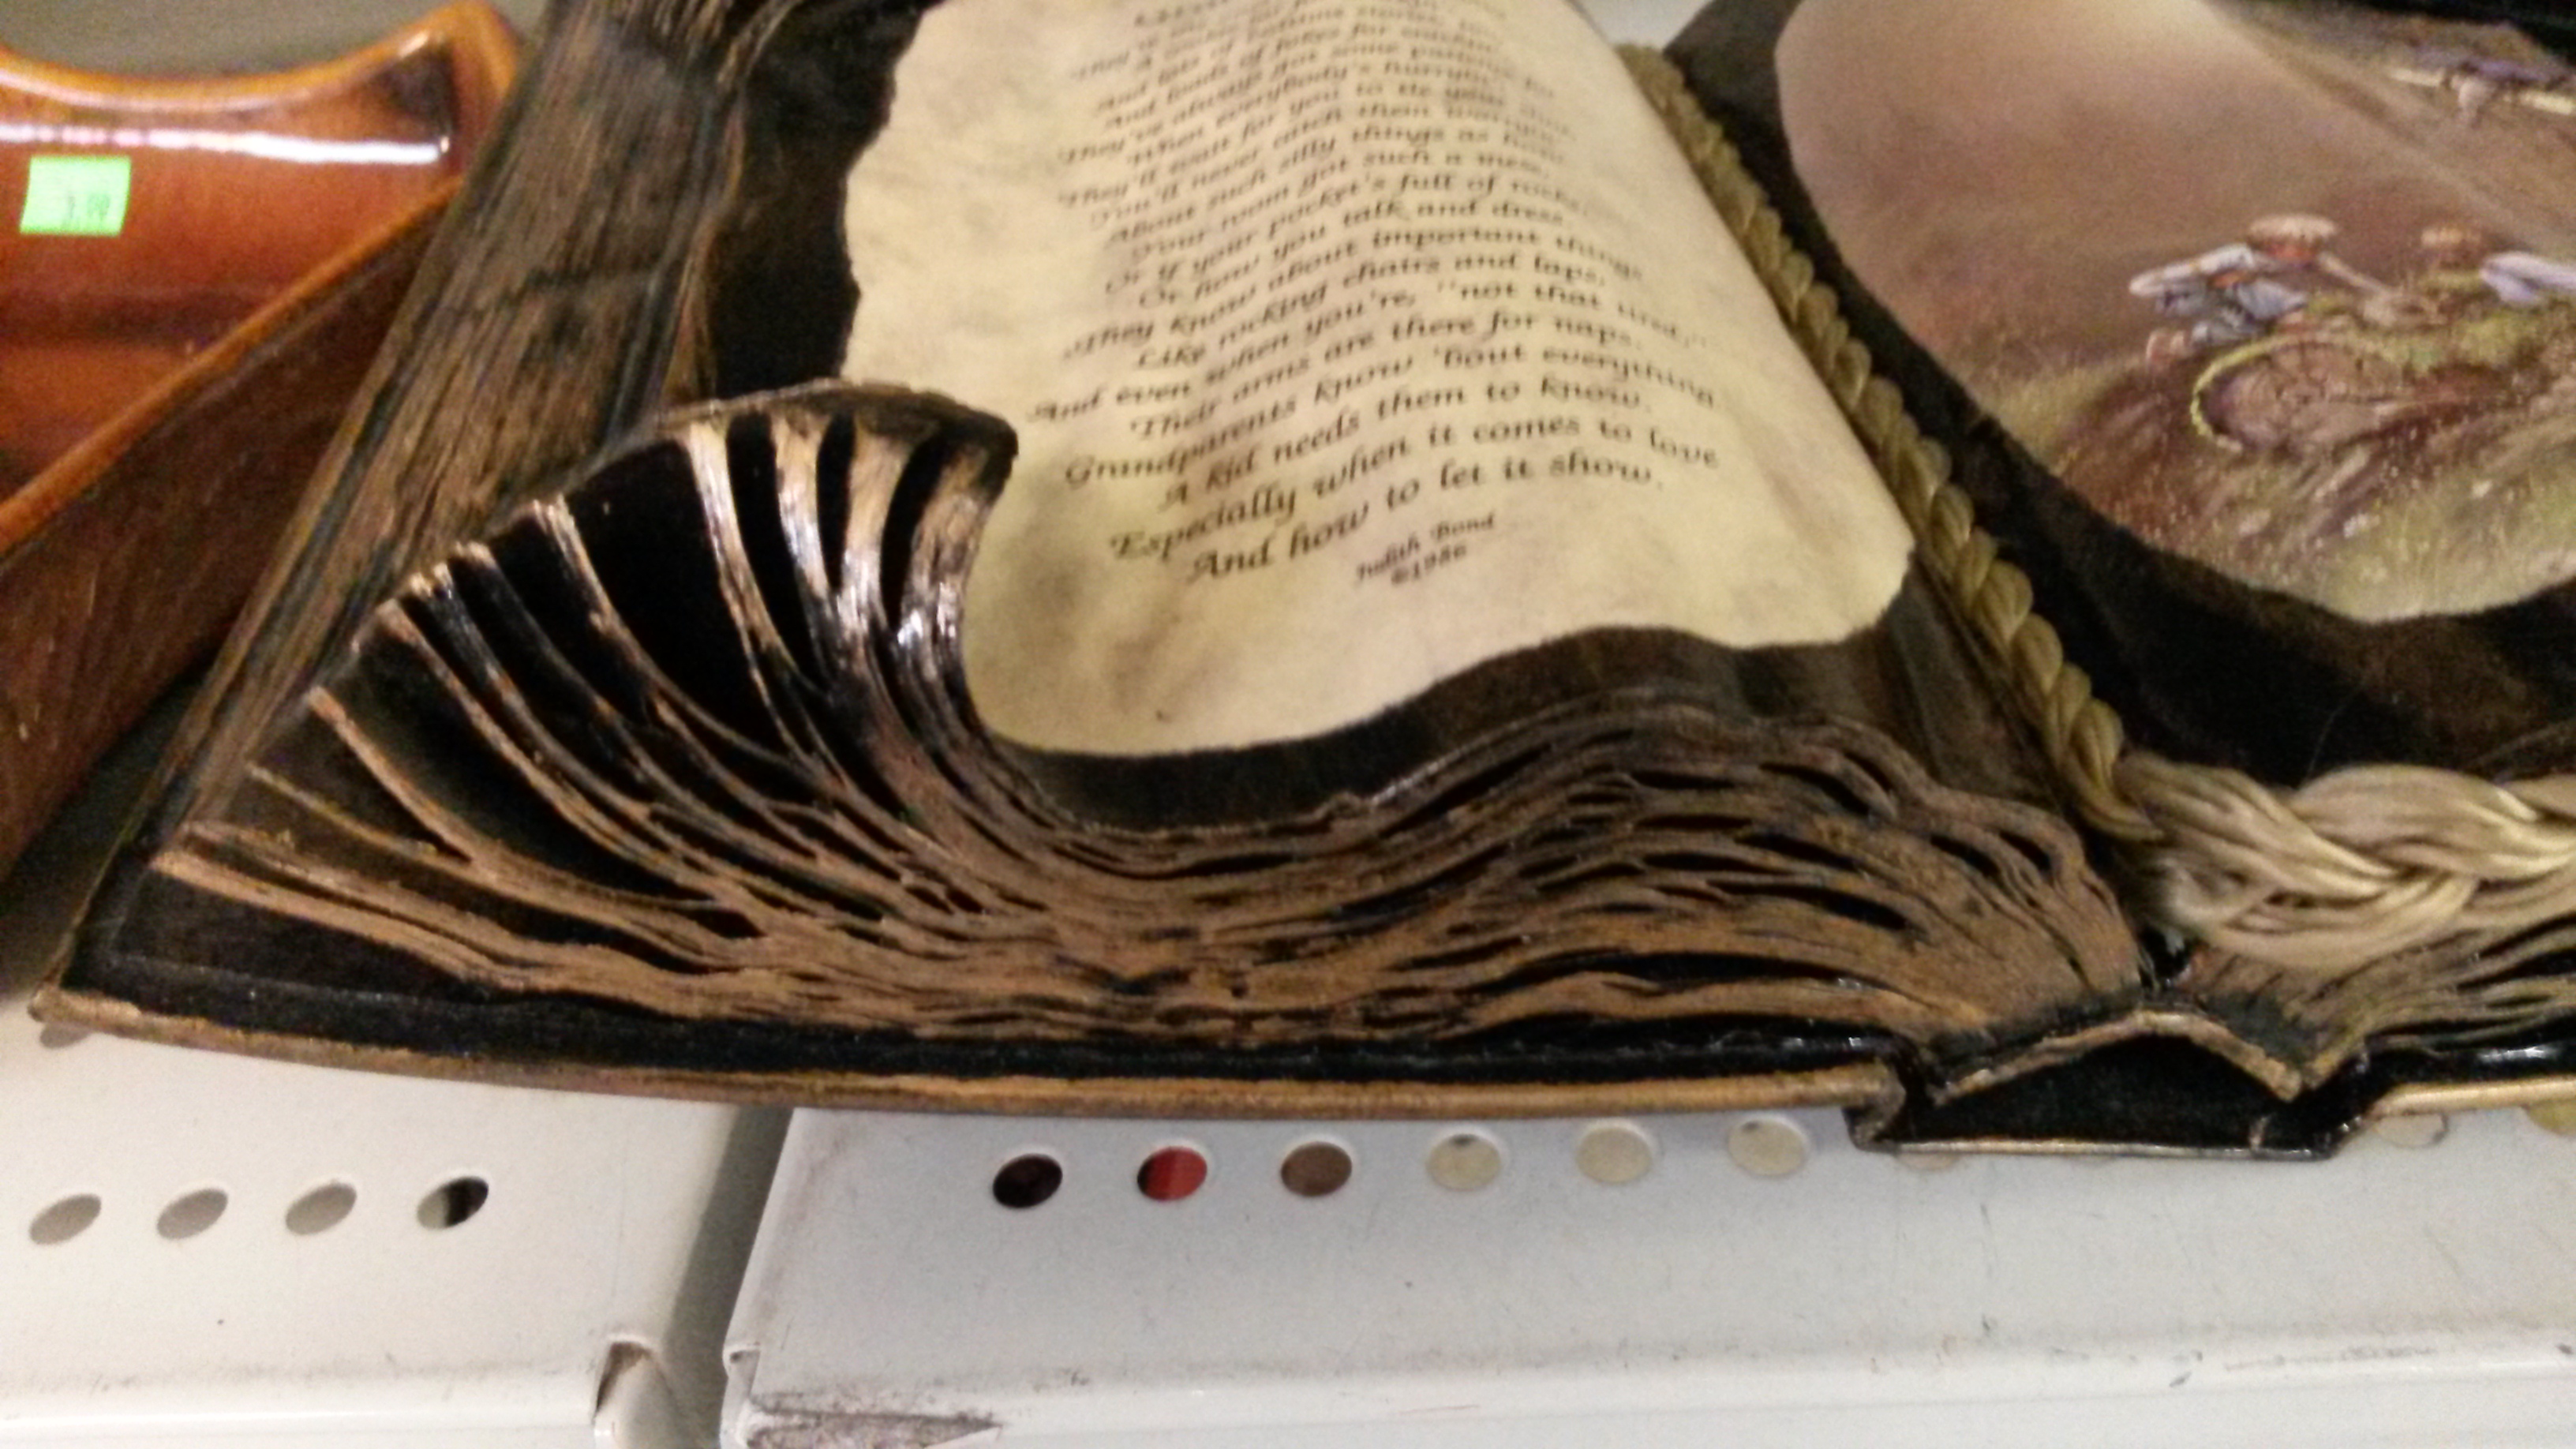 A
And lots of bedtime stories,
And loads of jokes for
They've always got some patience for
When everybody's hurryin'
They'll wait for you to tie your shoe
You'll never catch them worryin'
About such silly things as how
Your room got such a mess,
Or if your pocket's full of rocks,
Or how you talk and dress.
They know about important things
Like rocking chairs and laps,
And even when you're, "not that tired,"
Their arms are there for naps.
Grandparents know 'bout everything
A kid needs them to know.
Especially when it comes to love
And how to let it show.
Judith Bond
©1986